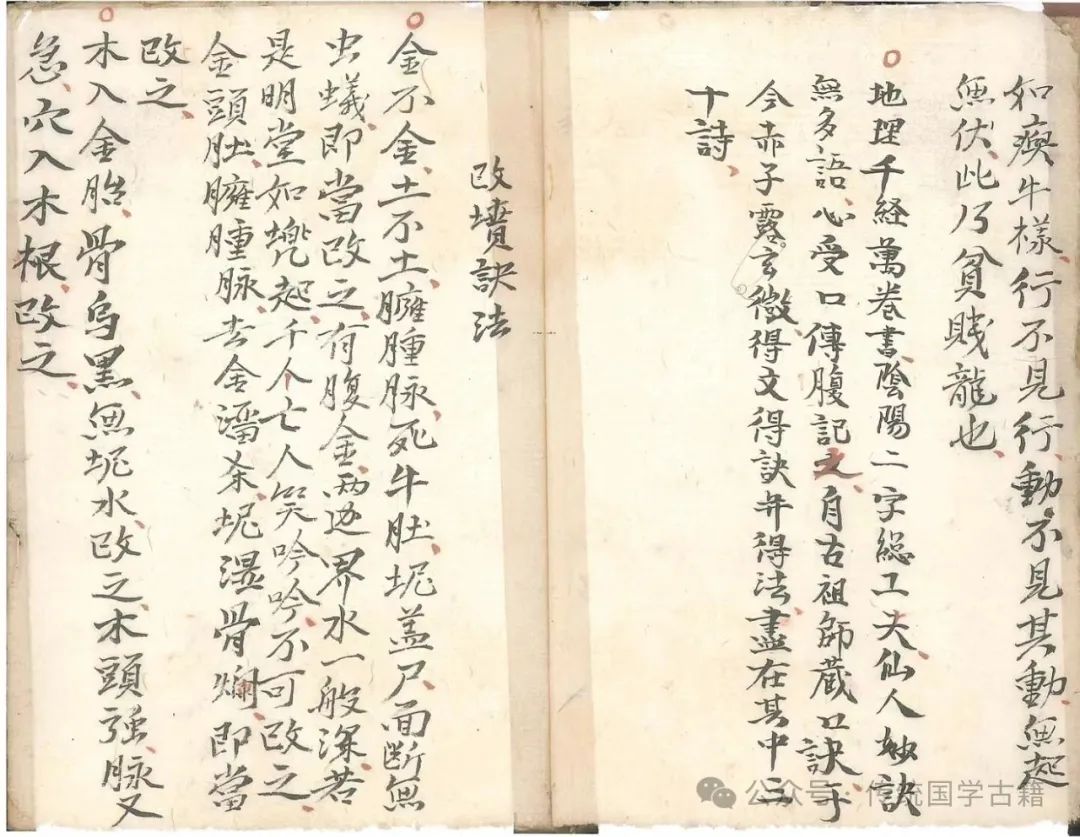 如瘓牛樣行不見行動不見其動無起
無伏此乃貧賤龍也
地理千経萬卷書陰陽二字緫工夫仙人妙訣
無多語心受口傳腹記之自古祖師蔵口訣于
今赤子露玄微得文得訣并得法盡在其中三
十詩
改墳訣法
金不金土不土臃腫脉死牛肚坭盖尸面断無
虫蟻即當改之有腹金兩边界水一般深若
是明堂如兠起千人亡人笑吟吟不可改之
金頭肚臃腫脉去金濡杀坭濕骨爛即當
改之
木入金胎骨烏黑無坭水改之木頭强脉又
急穴入木根改之
公众号·传统国学古籍